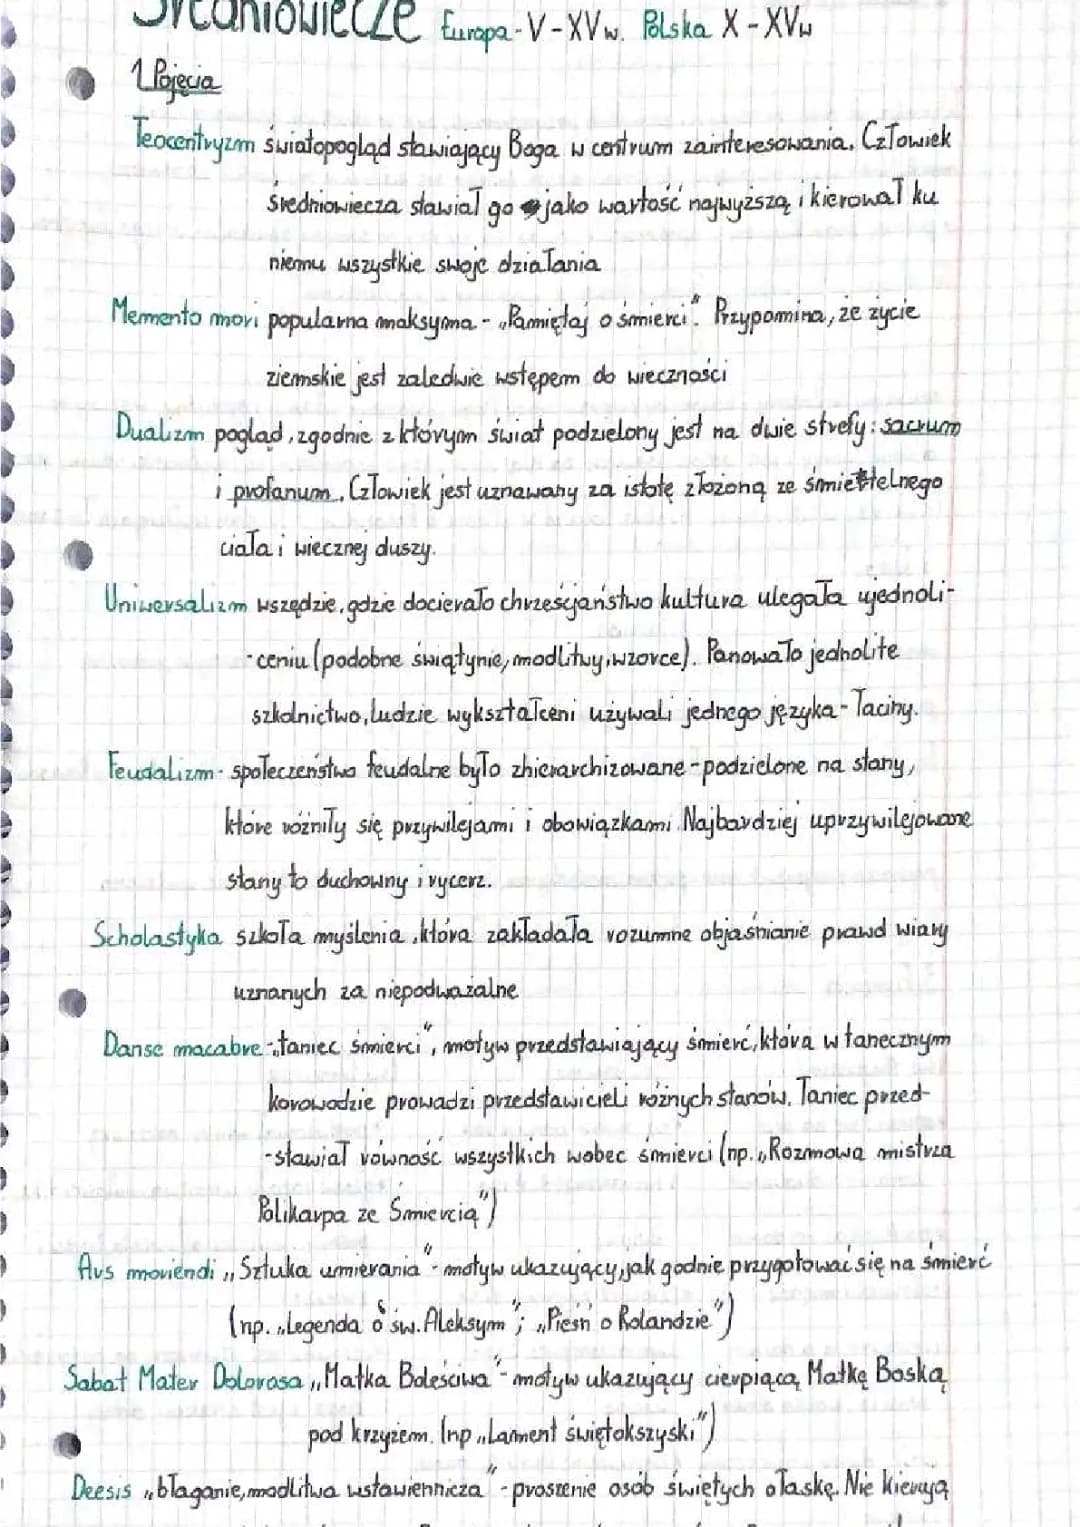 Średniowiecze Europa-V-XVw. Polska X-XVw
1. Pojęcia
Teocentryzm światopogląd stawiający Boga w centrum zainteresowania. Człowiek
średniowiecza stawiał go jako wartość najwyższą i kierował ku
niemu wszystkie swoje działania
Memento mori popularna maksyma - „Pamiętaj o śmierci". Przypomina, że życie
ziemskie jest zaledwie wstępem do wieczności
Dualizm pogląd, zgodnie z którym świat podzielony jest na dwie strefy: sacrum
i profanum. Człowiek jest uznawany za istotę złożoną ze śmiertelnego
ciała i wiecznej duszy.
Uniwersalizm wszędzie, gdzie docierało chrześcijaństwo kultura ulegała ujednoli-
-ceniu (podobne świątynie, modlitwy, wzorce). Panowało jednolite
szkolnictwo, ludzie wykształceni używali jednego języka - łaciny.
Feudalizm - społeczeństwo feudalne było zhierarchizowane - podzielone na stany,
które różniły się przywilejami i obowiązkami. Najbardziej uprzywilejowane
stany to duchowny i rycerz.
Scholastyka szkoła myślenia, która zakładała rozumne objaśnianie prawd wiary
uznanych za niepodważalne
Danse macabre - „taniec śmierci", motyw przedstawiający śmierć, która w tanecznym
korowodzie prowadzi przedstawicieli różnych stanów. Taniec przed-
-stawiał równość wszystkich wobec śmierci (np. „Rozmowa mistrza
Polikarpa ze Śmiercią")
Ars moriendi „Sztuka umierania" - motyw ukazujący, jak godnie przygotować się na śmierć
(np. „Legenda o św. Aleksym"; „Pieśń o Rolandzie")
Sabat Mater Dolorosa „Matka Boleściwa" - motyw ukazujący cierpiącą Matkę Boską
pod krzyżem. (np „Lament świętokszyski")
Deesis „błaganie, modlitwa wstawiennicza" - proszenie osób świętych o łaskę. Nie kierują